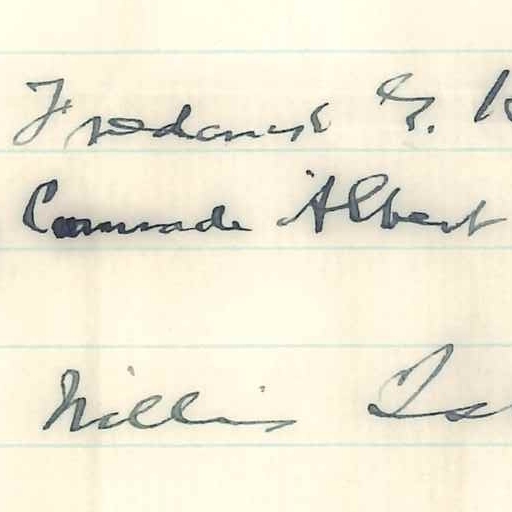 Frederick G.
Comrade Albert
Willis